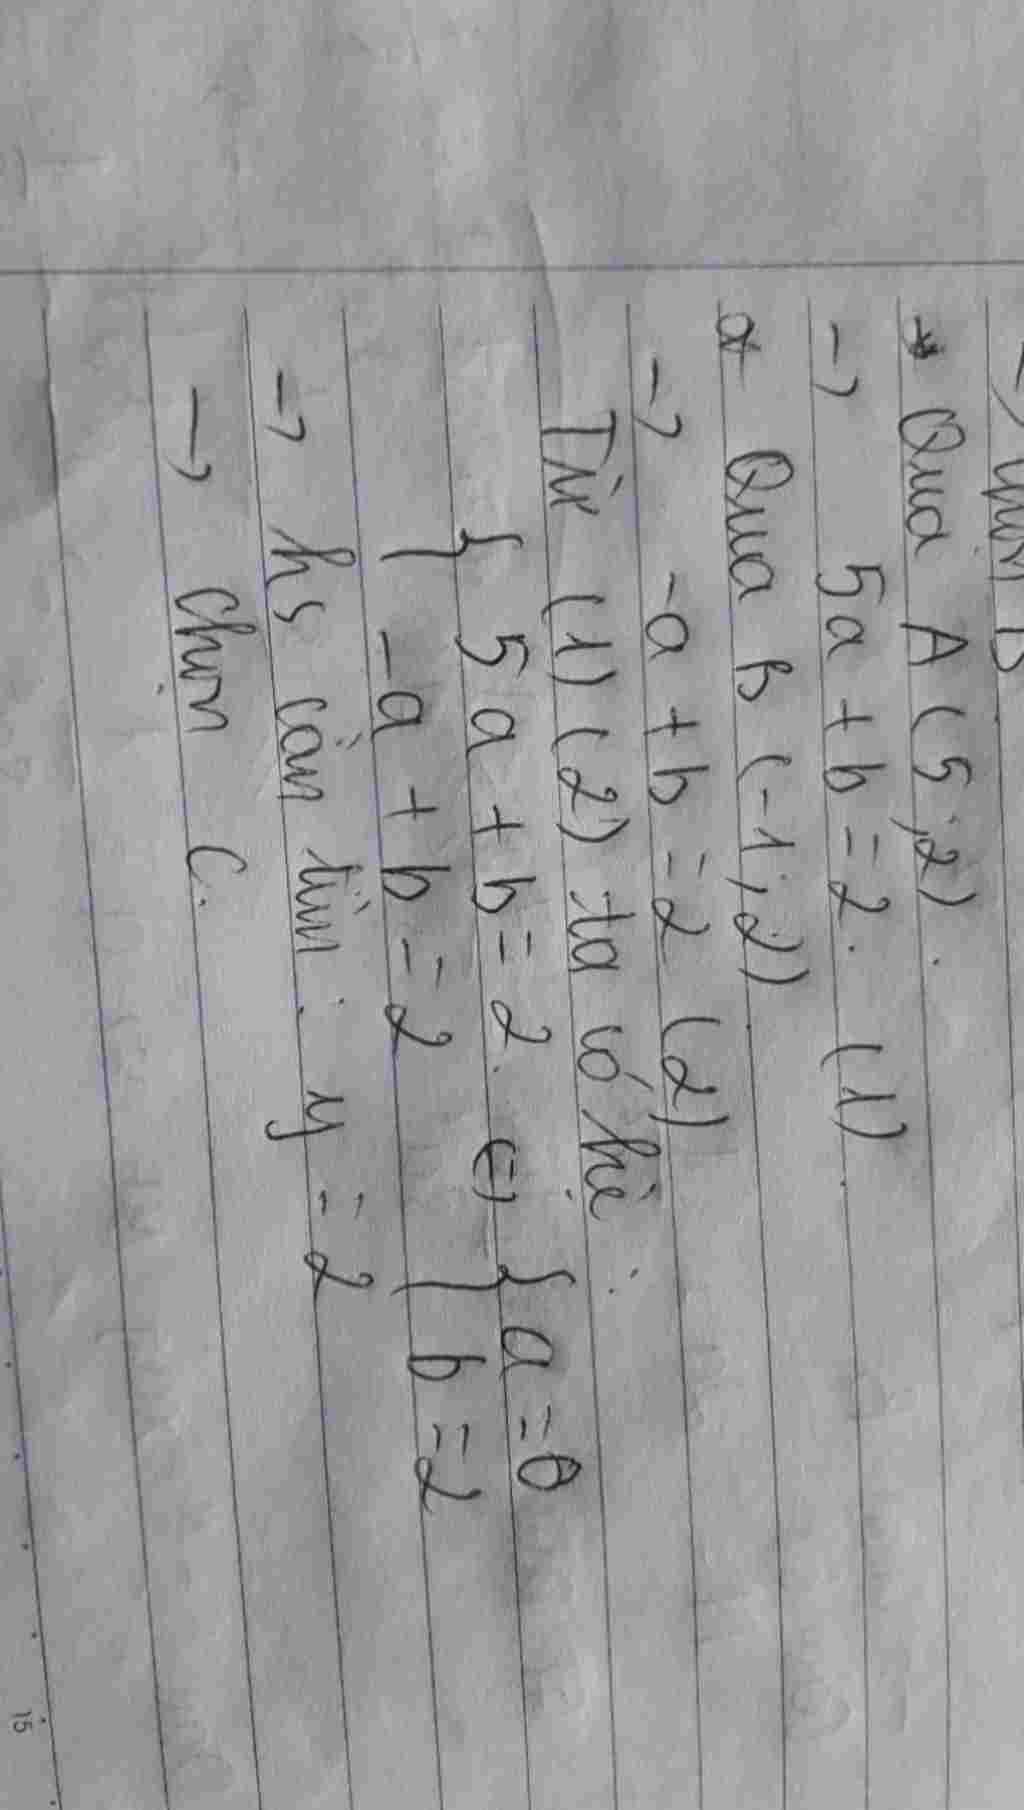 → Chọn B
* Qua A (5;2).
→ 5a + b = 2. (1)
* Qua B (-1;2)
→ -a + b = 2 (2)
Từ (1) (2) ta có hệ:
{ 5a + b = 2. (=) { a = 0
{ -a + b = 2 { b = 2
→ hs cần tìm: y = 2
→ Chọn C.
15